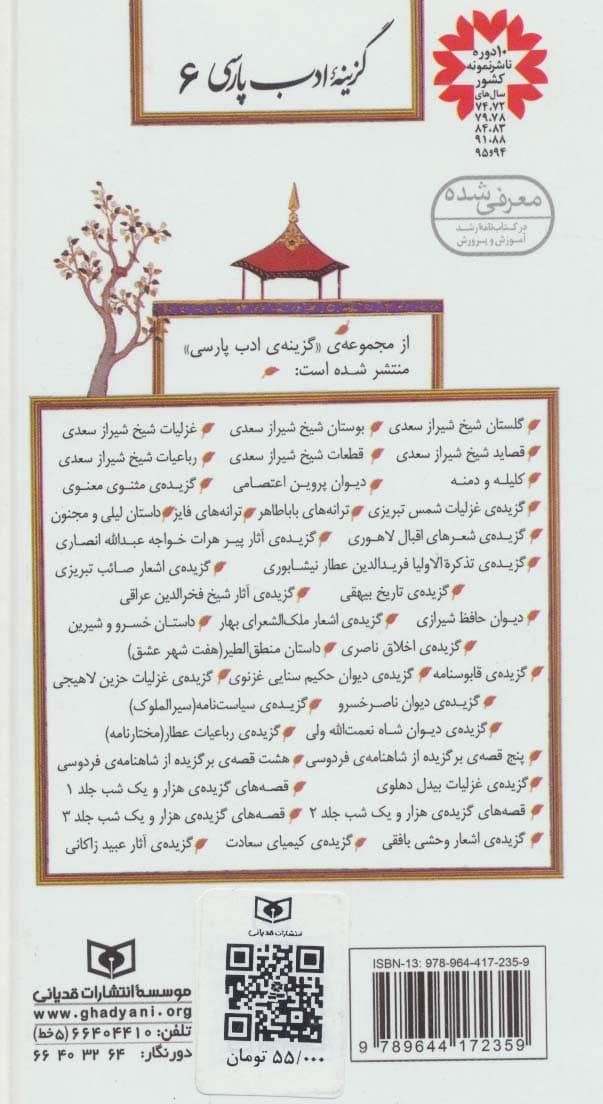 گزینهٔ ادب پارسی ۶
۱۰ دوره
ناشر نمونه
کشور
سال‌های
۷۴،۷۲
۷۹،۷۸
۸۴،۸۳
۹۱،۸۸
۹۴و۹۵
معرفی شده
در کتاب‌نامه رشد
آموزش و پرورش
از مجموعه‌ی «گزینه‌ی ادب پارسی»
منتشر شده است:
گلستان شیخ شیراز سعدی بوستان شیخ شیراز سعدی غزلیات شیخ شیراز سعدی
قصاید شیخ شیراز سعدی قطعات شیخ شیراز سعدی رباعیات شیخ شیراز سعدی
کلیله و دمنه دیوان پروین اعتصامی گزیده‌ی مثنوی معنوی
گزیده‌ی غزلیات شمس تبریزی ترانه‌های باباطاهر ترانه‌های فایز داستان لیلی و مجنون
گزیده‌ی شعرهای اقبال لاهوری گزیده‌ی آثار پیر هرات خواجه عبدالله انصاری
گزیده‌ی تذکرة‌الاولیا فریدالدین عطار نیشابوری گزیده‌ی اشعار صائب تبریزی
گزیده‌ی تاریخ بیهقی گزیده‌ی آثار شیخ فخرالدین عراقی
دیوان حافظ شیرازی گزیده‌ی اشعار ملک‌الشعرای بهار داستان خسرو و شیرین
گزیده‌ی اخلاق ناصری داستان منطق‌الطیر(هفت شهر عشق)
گزیده‌ی قابوسنامه گزیده‌ی دیوان حکیم سنایی غزنوی گزیده‌ی غزلیات حزین لاهیجی
گزیده‌ی دیوان ناصرخسرو گزیده‌ی سیاست‌نامه(سیرالملوک)
گزیده‌ی دیوان شاه نعمت‌الله ولی گزیده‌ی رباعیات عطار(مختارنامه)
پنج قصه‌ی برگزیده از شاهنامه‌ی فردوسی هشت قصه‌ی برگزیده از شاهنامه‌ی فردوسی
گزیده‌ی غزلیات بیدل دهلوی قصه‌های گزیده‌ی هزار و یک شب جلد ۱
قصه‌های گزیده‌ی هزار و یک شب جلد ۲ قصه‌های گزیده‌ی هزار و یک شب جلد ۳
گزیده‌ی اشعار وحشی بافقی گزیده‌ی کیمیای سعادت گزیده‌ی آثار عبید زاکانی
موسسهٔ انتشارات قدیانی
www.ghadyani.org
تلفن: ۶۶۴۰۴۴۱۰ (۵خط)
دورنگار: ۶۶ ۴۰ ۳۲ ۶۴
انتشارات قدیانی
۵۵/۰۰۰ تومان
ISBN-13: 978-964-417-235-9
9 789644 172359